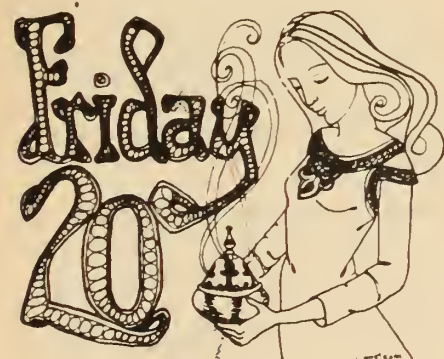 Friday
20